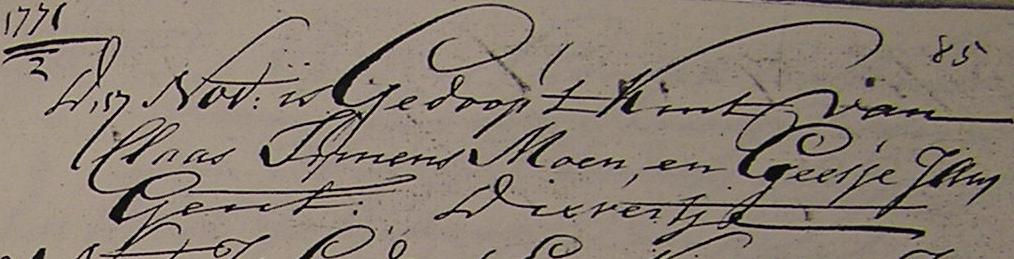 1771
2
85
D, 17 Nov: is Gedoop't Kint van
Claas Symens Moen, en Geesje Jans
Gent: Dieuwertje